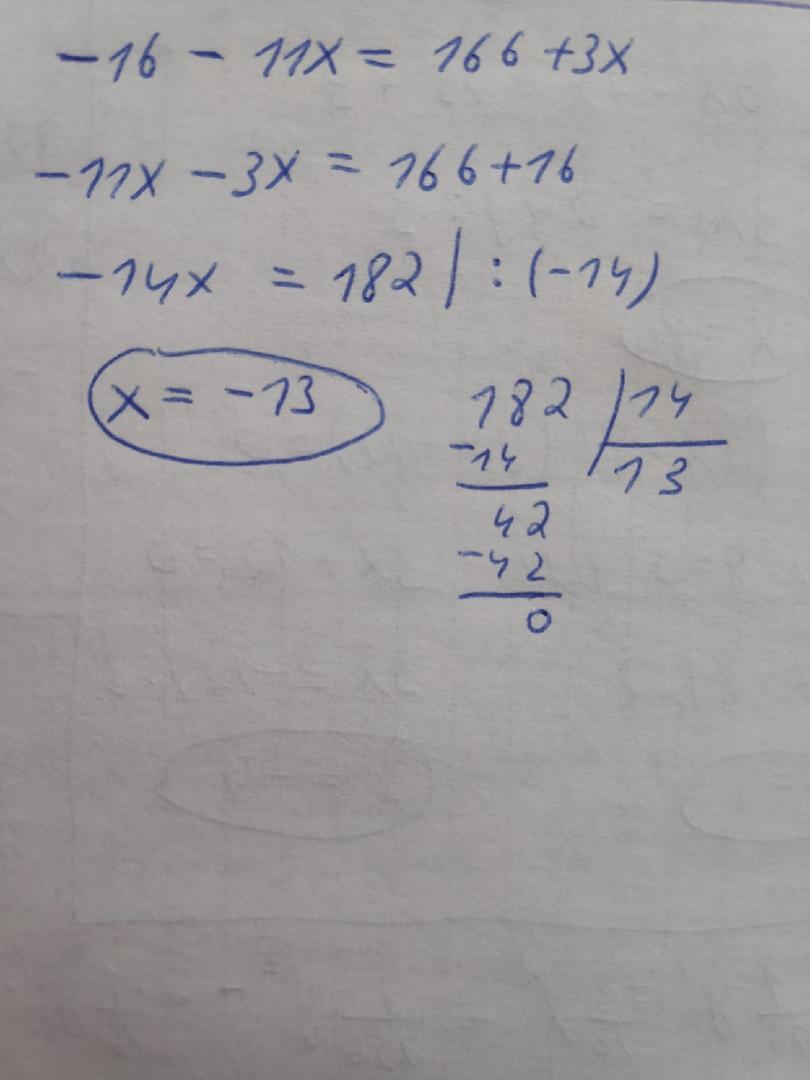 -16 - 11x = 166 +3x
-11x -3x = 166+16
-14x = 182 | : (-14)
x = -13
182 | 14
-14
13
42
-42
0